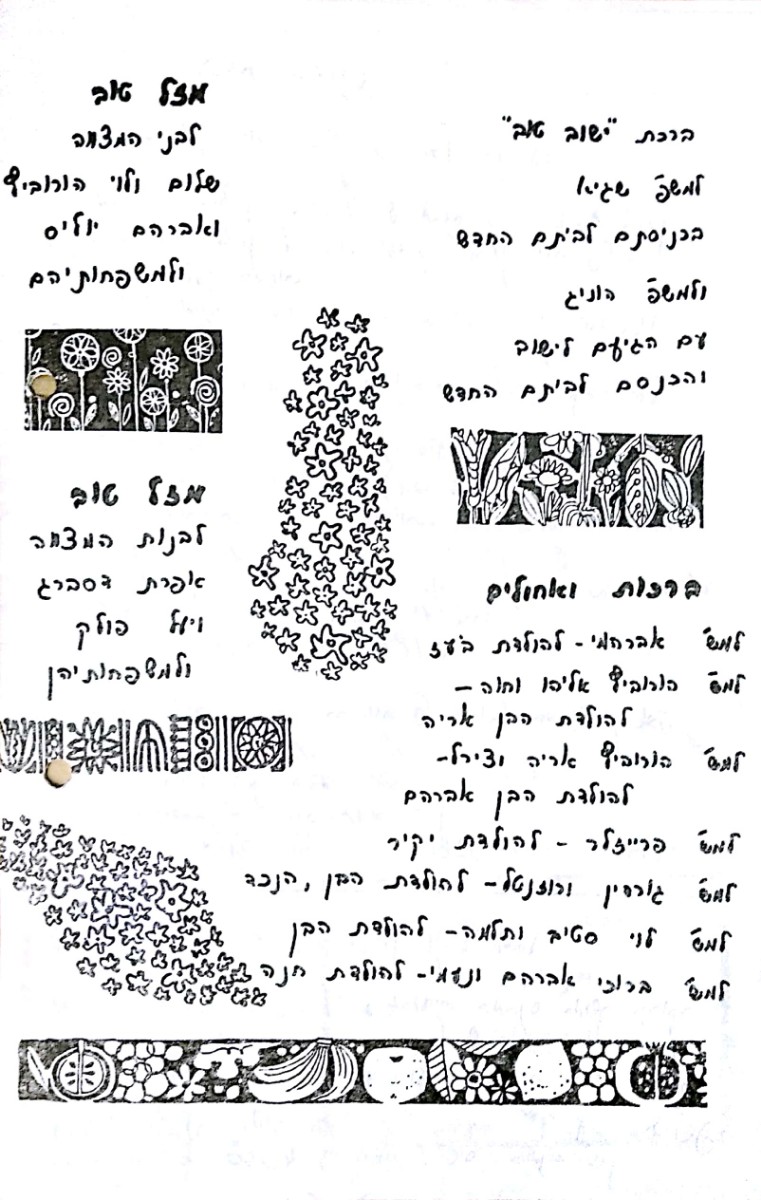 ברכת "ישוב טוב"
למשפ' שגיא
בכניסתם לביתם החדש
ולמשפ' הוניג
עם הגיעם לישוב
והכנסם לביתם החדש
מזל טוב
לבני המצוה
שלום ולוי הורוביץ
ואברהם יוליס
ולמשפחותיהם
מזל טוב
לבנות המצוה
אפרת דסברג
ויעל פולק
ולמשפחותיהן
ברכות ואחולים
למש' אברהמי - להולדת בעז
למש' הורוביץ אליהו וחוה -
להולדת הבן אריה
למש' הורוביץ אריה וצירל-
להולדת הבן אברהם
למש' פרייזלר - להולדת יקיר
למש' גורדין ורוזנטל - להולדת הבן, הנכד
למש' לוי סטיב ותלמה - להולדת הבן
למש' ברוכי אברהם ונעמי - להולדת חנה